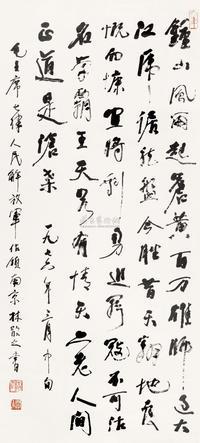 鍾山風雨起蒼黄百万雄師過大
江虎踞龍盤今勝昔天翻地覆
慨而慷宜將剩勇追窮寇不可沽
名学霸王天若有情天亦老人間
正道是滄桑 一九七年三月中旬
毛主席七律人民解放軍佔領南京 林散之書